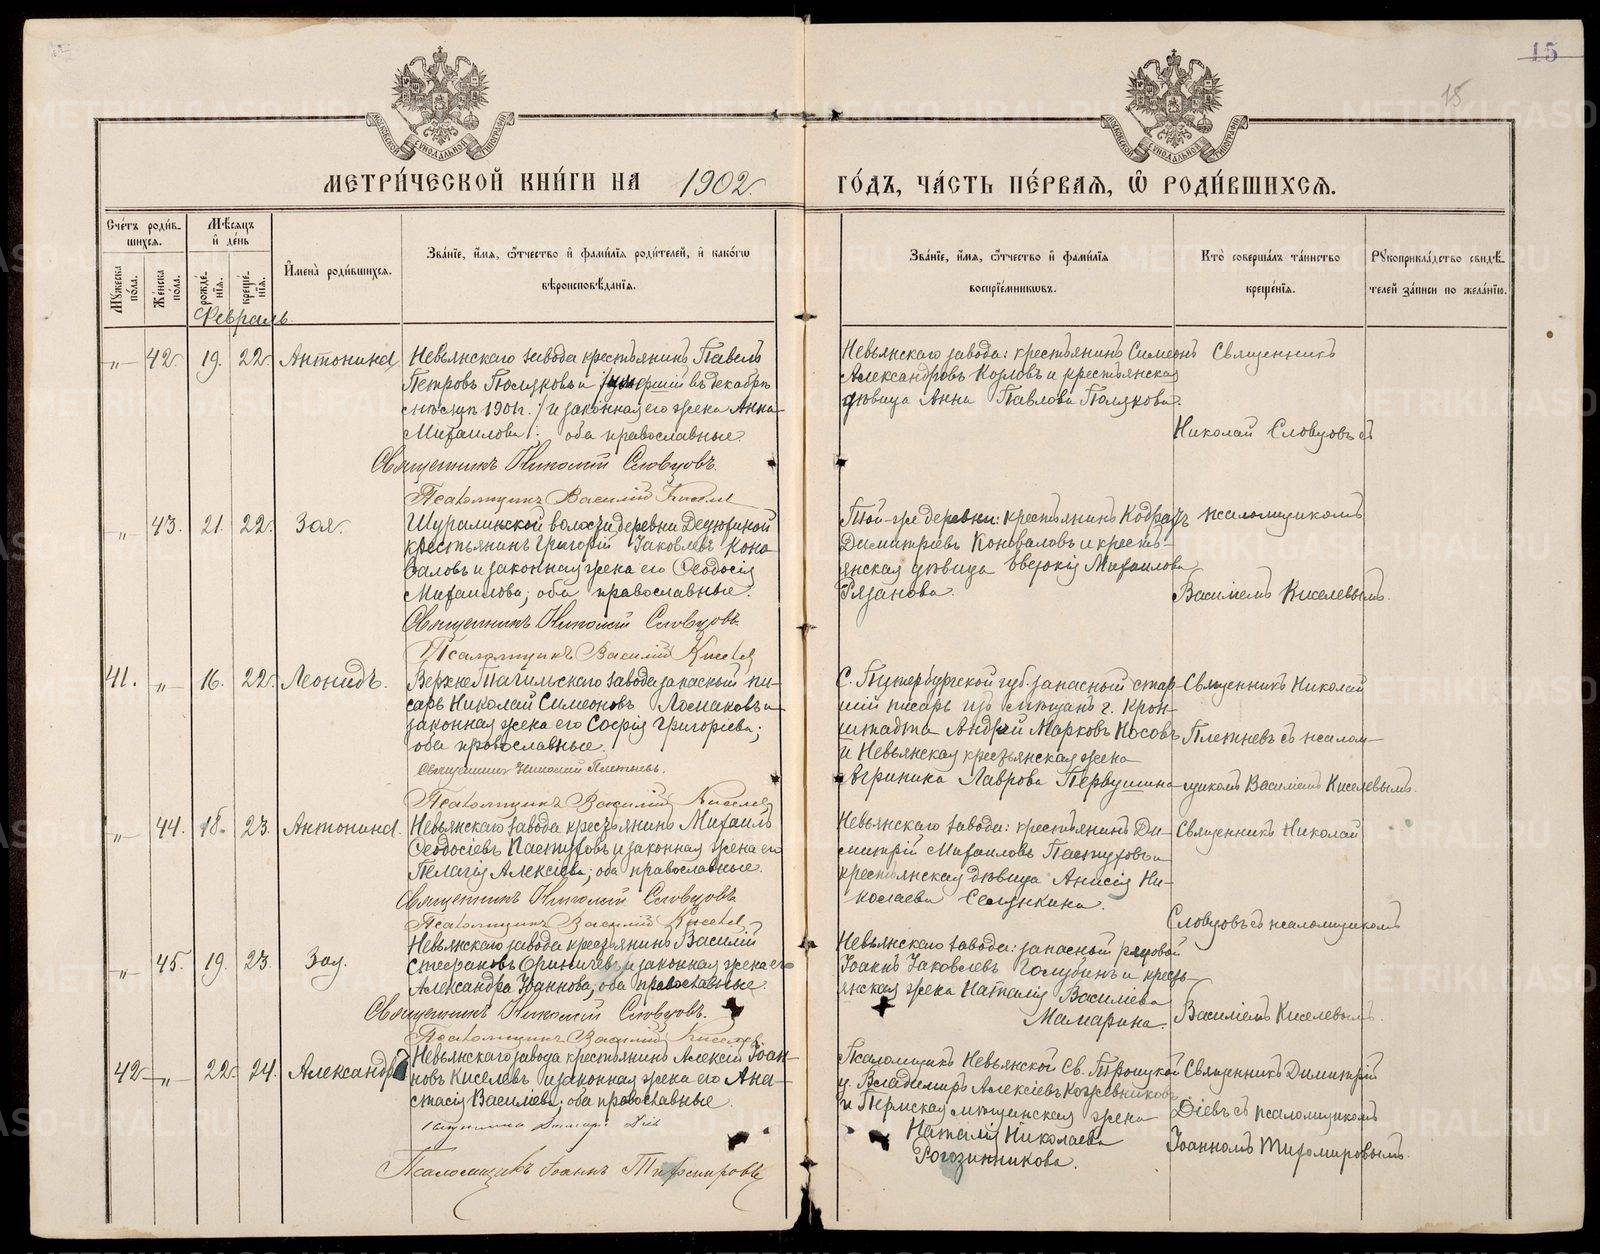 15
15
МЕТРИ́ЧЕСКОЙ КНИ́ГИ НА 1902 г.
ГО́ДЪ, ЧА́СТЬ ПЕ́РВАЯ, Ѿ РОДИ́ВШИХСЯ.
Сче́тъ роди́в-
шихся.
Мꙋ́жеска по́ла.
Же́нска по́ла.
Мѣ́сяцъ
и҆ де́нь
рожде́-
нїя.
креще́-
нїя.
И҆мена̀ роди́вшихся.
Зва́нїе, и҆́мя, ѻ҆́тчество и҆ фами́лїя роди́телей, и҆ како́гѡ
вѣроисповѣ́данїя.
Зва́нїе, и҆́мя, ѻ҆́тчество и҆ фами́лїя
воспрїе́мникѡвъ.
Кто̀ соверша́лъ та́инство
креще́нїя.
Рꙋкоприкла́дство свидѣ́-
телей за́писи по жела́нїю.
Февраль.
„ 42. 19. 22. Антонина
Невьянскаго завода крестьянинъ Павелъ
Петровъ Поляковъ и /умершій въ декабрѣ
мѣсяцѣ 1901 г./ и законная его жена Анна
Михаилова: оба православные.
Священникъ Николай Словцовъ.
Псаломщикъ Василій Киселев
Невьянскаго завода: крестьянинъ Симеонъ
Александровъ Козловъ и крестьянская
дѣвица Анна Павлова Полякова.
Священникъ
Николай Словцовъ съ
„ 43. 21. 22. Зоя.
Шуралинской волости деревни Дедюгиной
крестьянинъ Григорій Іаковлевъ Коно-
валовъ и законная жена его Ѳеодосія
Михаилова; оба православные.
Священникъ Николай Словцовъ.
Псаломщикъ Василій Киселев
Той-же деревни: крестьянинъ Кодратъ
Димитріевъ Коноваловъ и кресть-
янская дѣвица Евдокія Михаилова
Рязанова.
псаломщикомъ
Василіемъ Киселевымъ.
41. „ 16. 22. Леонидъ.
Верхне-Тагильскаго завода запасный пи-
сарь Николай Симеоновъ Ломаковъ и
законная жена его Софія Григоріева;
оба православные.
Священникъ Николай Плетневъ.
Псаломщикъ Василій Киселев
С. Петербургской губ. запасный стар-
шій писарь изъ мѣщанъ г. Крон-
штадта Андрей Марковъ Носовъ
и Невьянская крестьянская жена
Агрипина Лаврова Первушина
Священникъ Николай
Плетневъ съ псалом-
щикомъ Василіемъ Киселевымъ.
„ 44. 18. 23. Антонина.
Невьянскаго завода крестьянинъ Михаилъ
Ѳеодосіевъ Пастуховъ и законная жена его
Пелагія Алексіева; оба православные.
Священникъ Николай Словцовъ
Псаломщикъ Василій Киселев
Невьянскаго завода: крестьянинъ Ди-
митрій Михаиловъ Пастуховъ и
крестьянская дѣвица Анисія Ни-
колаева Селянкина.
Священникъ Николай
Словцовъ съ псаломщикомъ
„ 45. 19. 23. Зоя.
Невьянскаго завода крестьянинъ Василій
Стефановъ и законная жена его
Александра Іоаннова; оба православные.
Священникъ Николай Словцовъ.
Псаломщикъ Василій Киселев.
Невьянскаго завода: запасный рядовой
Іоаннъ Іаковлевъ Голубинъ и кресть-
янская жена Наталія Василіева
Мамарина.
Василіемъ Киселевымъ.
42 „ 22. 24. Александръ
Невьянскаго завода крестьянинъ Алексій Іоан-
новъ Киселевъ и законная жена его Ана-
стасія Василіева; оба православные.
Священникъ Димитрій Діевъ
Псаломщикъ Іоаннъ Тихомировъ
Псаломщикъ Невьянской Св. Троицкой
ц. Владимиръ Алексіевъ Кожевниковъ
и Пермская мѣщанская жена
Наталія Николаева
Рогозинникова.
Священникъ Димитрій
Діевъ съ псаломщикомъ
Іоанномъ Тихомировымъ.